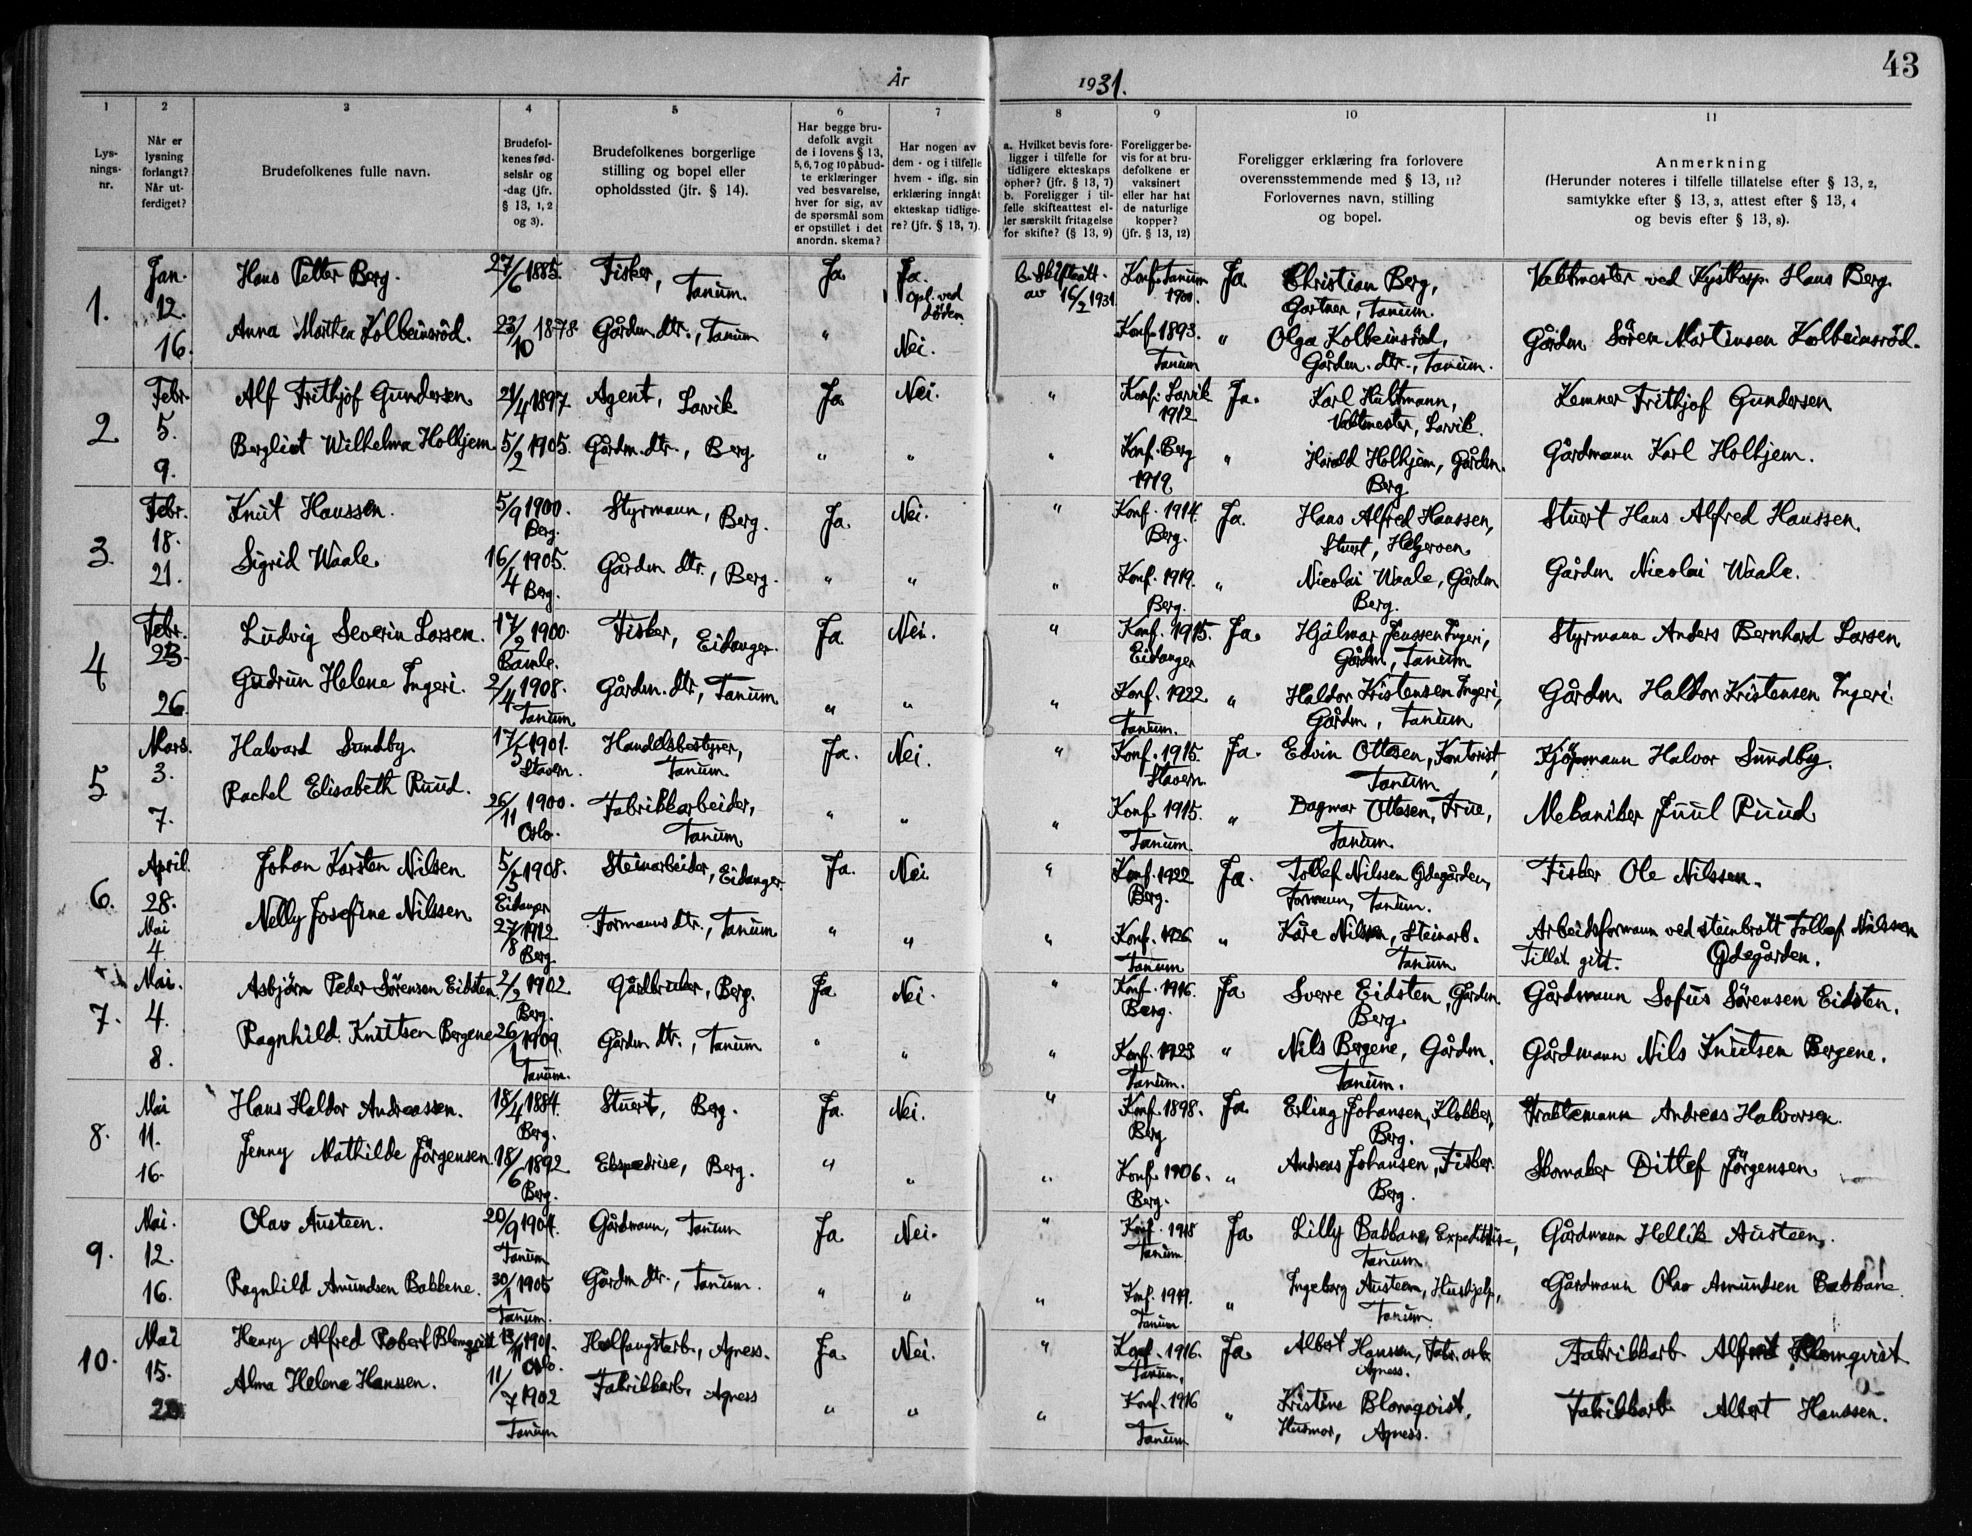 43
År 1931.
1 2 3 4 5 6 7 8 9 10 11
Lys-
nings-
nr.
Når er
lysning
forlangt?
Når ut-
ferdiget?
Brudefolkenes fulle navn.
Brudefol-
kenes fød-
selsår og
-dag (jfr.
§ 13, 1, 2
og 3).
Brudefolkenes borgerlige
stilling og bopel eller
opholdssted (jfr. § 14).
Har begge bru-
defolk avgit
de i lovens § 13,
5, 6, 7 og 10 påbud-
te erklæringer
ved besvarelse,
hver for sig, av
de spørsmål som
er opstillet i det
anordn. skema?
Har nogen av
dem - og i tilfelle
hvem - iflg. sin
erklæring inngåt
ekteskap tidlige-
re? (jfr. § 13, 7).
a. Hvilket bevis fore-
ligger i tilfelle for
tidligere ekteskaps
ophør? (jfr. § 13, 7)
b. Foreligger i til-
felle skifteattest el-
ler særskilt fritagelse
for skifte? (§ 13, 9)
Foreligger be-
vis for at bru-
defolkene er
vaksinert
eller har hat
de naturlige
kopper?
(jfr. § 13, 12)
Foreligger erklæring fra forlovere
overensstemmende med § 13, 11?
Forlovernes navn, stilling
og bopel.
Anmerkning
(Herunder noteres i tilfelle tillatelse efter § 13, 2,
samtykke efter § 13, 3, attest efter § 13, 4
og bevis efter § 13, 8).
1. Jan. 12. 16.
Hans Petter Berg. 27/6 1885. Fisker, Tanum. Ja Ja. Opl. ved døden. b. Skifteatt. av 16/2 1931. Konf. Tanum 1900. Ja Christian Berg, Gartner, Tanum. Vaktmester ved Kystksp. Hans Berg.
Anna Marthea Kolbeinsröd. 23/10 1878 Gårdm. dtr., Tanum " Nei. Konf. 1893. Tanum " Olga Kolbeinsröd, Gårdm. dtr., Tanum. Gårdm. Sören Martinsen Kolbeinsröd.
2 Febr. 5. 9.
Alf Frithjof Gundersen 21/4 1897 Agent, Larvik Ja Nei. " Konf. Larvik 1912 Ja. Karl Hultmann, Vaktmester, Larvik. Kemner Frithjof Gundersen
Bergliot Wilhelma Holhjem 5/2 1905. Gårdm. dtr., Berg. " " " Konf. Berg 1919 " Harald Holhjem, Gårdm. Berg Gårdmann Karl Holhjem.
3. Febr. 18. 21.
Knut Hanssen. 5/9 1900. Berg. Styrmann, Berg. Ja. Nei. " Konf. 1914. Berg. Ja. Hans Alfred Hanssen, Stuert, Helgeroen Stuert Hans Alfred Hanssen.
Sigrid Waale 16/4 1905. Berg. Gårdm dtr., Berg. " " " Konf. 1919. Berg. " Nicolai Waale, Gårdm Berg. Gårdm Nicolai Waale.
4 Febr. 23. 26.
Ludvig Severin Larsen. 17/2 1900. Bamle. Fisker, Eidanger. Ja Nei. " Konf. 1915. Eidanger Ja. Hjalmar Jenssen Ingeri, Gårdm, Tanum Styrmann Anders Bernhard Larsen
Gudrun Helene Ingeri. 2/4 1908. Tanum Gårdm. dtr, Tanum " " " Konf. 1922 Tanum. " Haldor Kristensen Ingeri, Gårdm, Tanum Gårdm Haldor Kristensen Ingeri.
5 Mars. 3. 7.
Halvard Sundby. 17/5 1901. Stavern. Handelsbestyrer, Tanum. Ja. Nei. " Konf. 1915. Stavern. Ja. Edvin Ottesen, Kontorist, Tanum Kjöpmann Halvor Sundby.
Rachel Elisabeth Ruud. 26/11 1900. Oslo. Fabrikkarbeider, Tanum " " " Konf. 1915. Tanum " Dagmar Ottesen, Frue, Tanum. Mekaniker Juul Ruud
6. April. 28. Mai 4
Johan Karsten Nilsen 5/5 1908. Eidanger Steinarbeider, Eidanger Ja. Nei. " Konf. 1922 Berg. Ja. Tollef Nilssen Ödegården, Formann, Tanum. Fisker Ole Nilssen.
Nelly Josefine Nilssen 27/8 1912 Berg. Formanns dtr., Tanum " " " Konf. 1926 Tanum " Kåre Nilsen, Steinarb. Tanum Arbeidsformann ved steinbrott Tollef Nilssen Ödegården.
Tillat. gitt.
7. Mai. 4. 8.
Asbjörn Peder Sörensen Eidsten. 2/2 1902 Berg. Gårdbruker, Berg. Ja Nei. " Konf. 1916. Berg. Ja Sverre Eidsten, Gårdm. Berg Gårdmann Sofus Sörensen Eidsten.
Ragnhild Knutsen Bergene 26/1 1909. Tanum. Gårdm dtr., Tanum " " " Konf. 1923 Tanum. " Nils Bergene, Gårdm. Tanum. Gårdmann Nils Knutsen Bergene.
8. Mai 11. 16.
Hans Haldor Andreassen. 18/4 1884. Berg. Stuert, Berg. Ja. Nei. " Konf. 1898. Berg Ja Erling Johansen, Klokker, Berg. Andreas Halvorsen.
Jenny Mathilde Jörgensen. 18/6 1892 Berg. Ekspedrise, Berg. " " " Konf. 1906. Berg. " Andreas Johansen, Fisker. Berg. Skomaker Ditlef Jörgensen
9. Mai. 12. 16.
Olav Austeen. 20/9 1904. Tanum Gårdmann, Tanum Ja Nei. " Konf. 1918 Tanum Ja Lilly Bakkane, Expeditrise, Tanum Gårdmann Hellik Austeen.
Ragnhild Amundsen Bakkene. 30/1 1905 Tanum. Gårdm dtr., Tanum. " " " Konf. 1919. Tanum " Ingeborg Austeen, Hushjelp, Tanum Gårdmann Olav Amundsen Bakkane
10. Mai 15. 22.
Henry Alfred Robert Blomqvist 1901. Oslo. Hvalfangstarb., Agness. Ja Nei. " Konf. 1916. Tanum. Ja Albert Hansen, Fabr. arb. Agness. Fabrikkarb Alfred Blomqvist
Alma Helene Hanssen. 11/7 1902 Tanum Fabrikkarb, Agness " " " Konf. 1916 Tanum " Kristine Blomqvist, Husmor, Agness. Fabrikkarb Albert Hanssen.